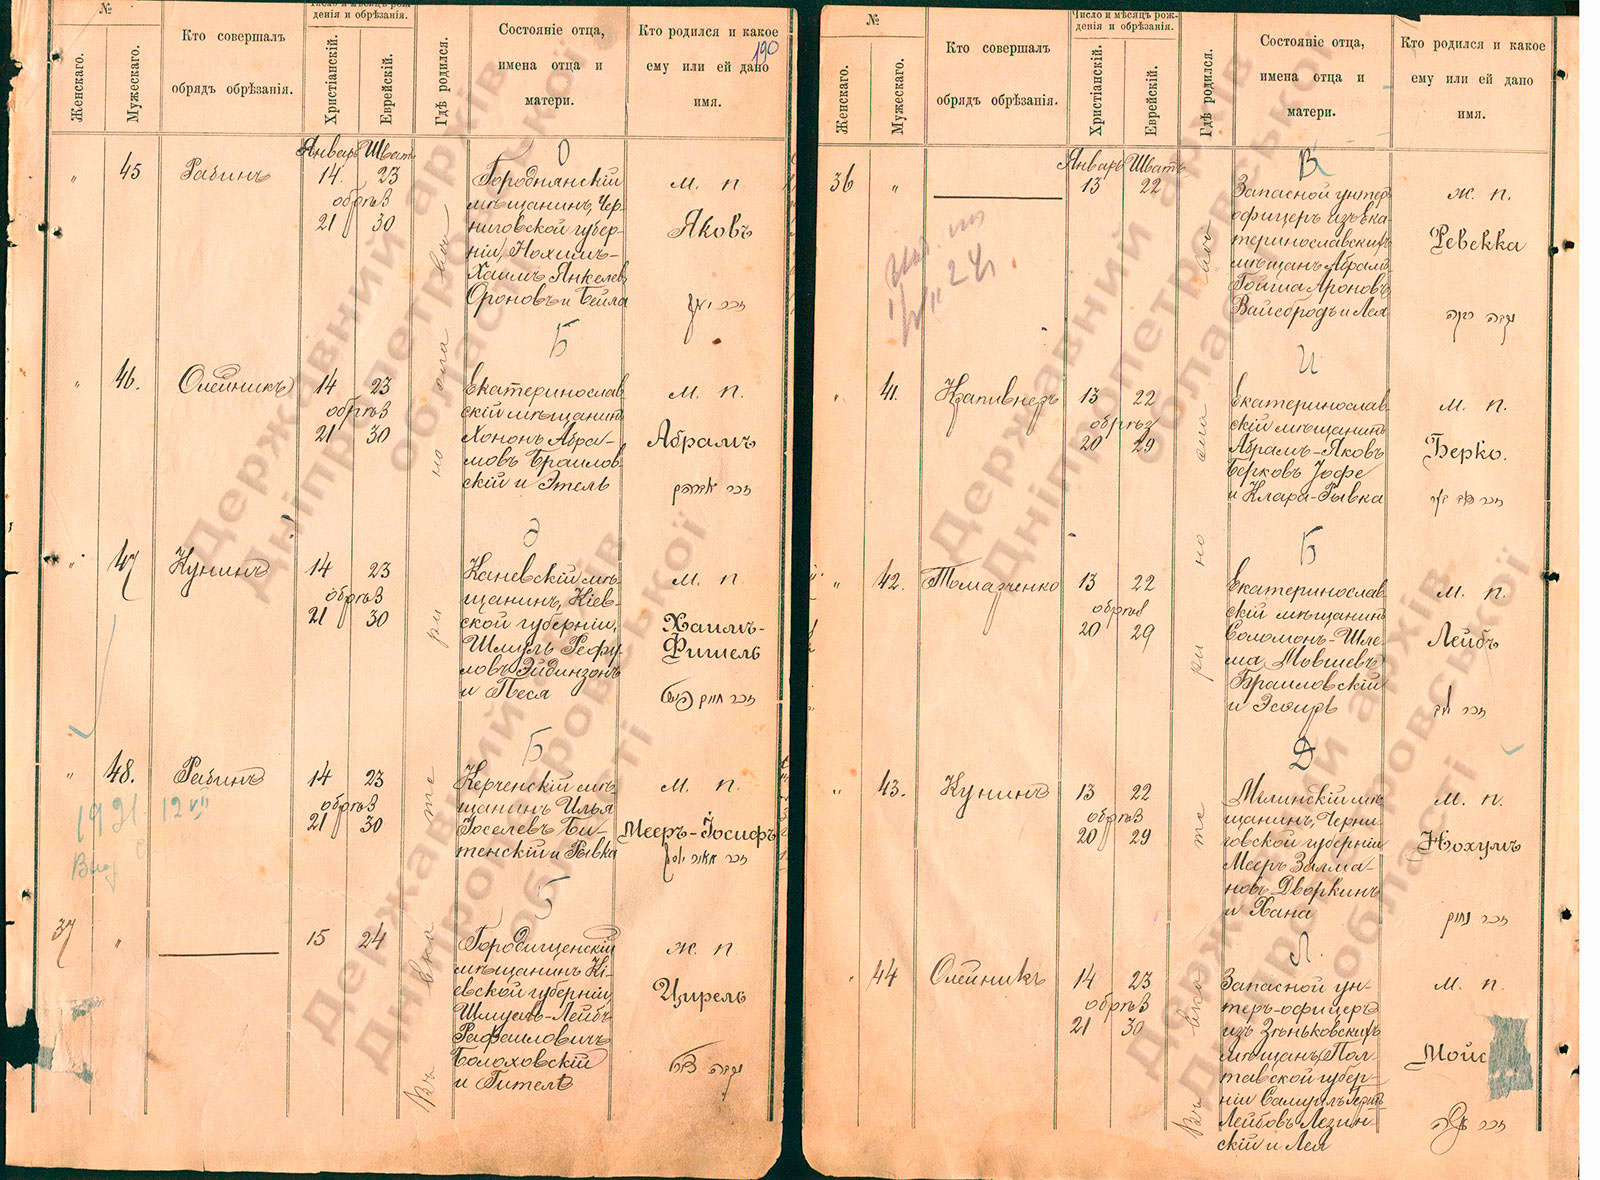 №
Женскаго.
Мужескаго.
Кто совершалъ
обрядъ обрѣзанія.
Число и мѣсяцъ рож-
денія и обрѣзанія.
Христіанскій.
Еврейскій.
Гдѣ родился.
Состояніе отца,
имена отца и
матери.
Кто родился и какое
ему или ей дано
имя.
190
Январь Шватъ
45 Рабинъ 14 23
обрѣз
21 30
О
Городнянскій
мѣщанинъ, Чер-
ниговской губер-
ніи, Нохимъ-
Хаимъ Янкелев
Ороновъ и Бейла
м. п.
Яковъ
Б
46. Олейникъ 14 23
обрѣз
21 30
Екатеринослав
скій мѣщанинъ
Хононъ Абра-
мовъ Браилов
скій и Этель
м. п.
Абрамъ
Э
47 Кунинъ 14 23
обрѣз
21 30
Каневскій мѣ-
щанинъ, Кіев-
ской губерніи,
Шмуль Рефу
ловъ Эйдинзонъ
и Песя
м. п.
Хаимъ-
Фишель
Б
48. Рабинъ 14 23
обрѣз
21 30
Керченскій мѣ
щанинъ Илья
Іоселевъ Би-
тенскій и Рывка
м. п.
Мееръ-Іосифъ
1921 12 VII
Б
37 " 15 24
Городищенскій
мѣщанинъ Кі-
евской губерніи
Шмуль-Лейбъ
Рафаиловичъ
Болоховскій
и Гитель
ж. п
Цирель
Въ Екатеринославѣ
№
Женскаго.
Мужескаго.
Кто совершалъ
обрядъ обрѣзанія.
Число и мѣсяцъ рож-
денія и обрѣзанія.
Христіанскій.
Еврейскій.
Гдѣ родился.
Состояніе отца,
имена отца и
матери.
Кто родился и какое
ему или ей дано
имя.
Январь Шватъ
36 " 13 22
В
Запасной унтер
офицеръ изъ Ека
теринославскихъ
мѣщанъ Абрамъ
Гойша Ароновъ
Вайсбродъ и Лея
ж. п.
Ревекка
И
41. Крапивнеръ 13 22
обрѣз
20 29
Екатеринослав
скій мѣщанинъ
Абрамъ-Яковъ
Берковъ Іофе
и Клара-Рывка
м. п.
Берко.
Б
42. Томазченко 13 22
обрѣз
20 29
Екатеринослав
скій мѣщанинъ
Соломонъ-Шле
ма Мовшевъ
Браиловскій
и Эсѳирь
м. п.
Лейбъ
Д
43. Кунинъ 13 22
обрѣз
20 29
Мглинскій мѣ
щанинъ, Черни
говской губерніи
Мееръ Залма-
новъ Дворкинъ
и Хана
м. п.
Нохумъ
Л.
44 Олейникъ 14 23
обрѣз
21 30
Запасной ун-
теръ-офицеръ
изъ Зѣньковскихъ
мѣщанъ, Пол-
тавской губер-
ніи Самуилъ
Лейбовъ Лезин-
скій и Лея
м. п.
Мойс
Державний архів
Дніпропетровської
області